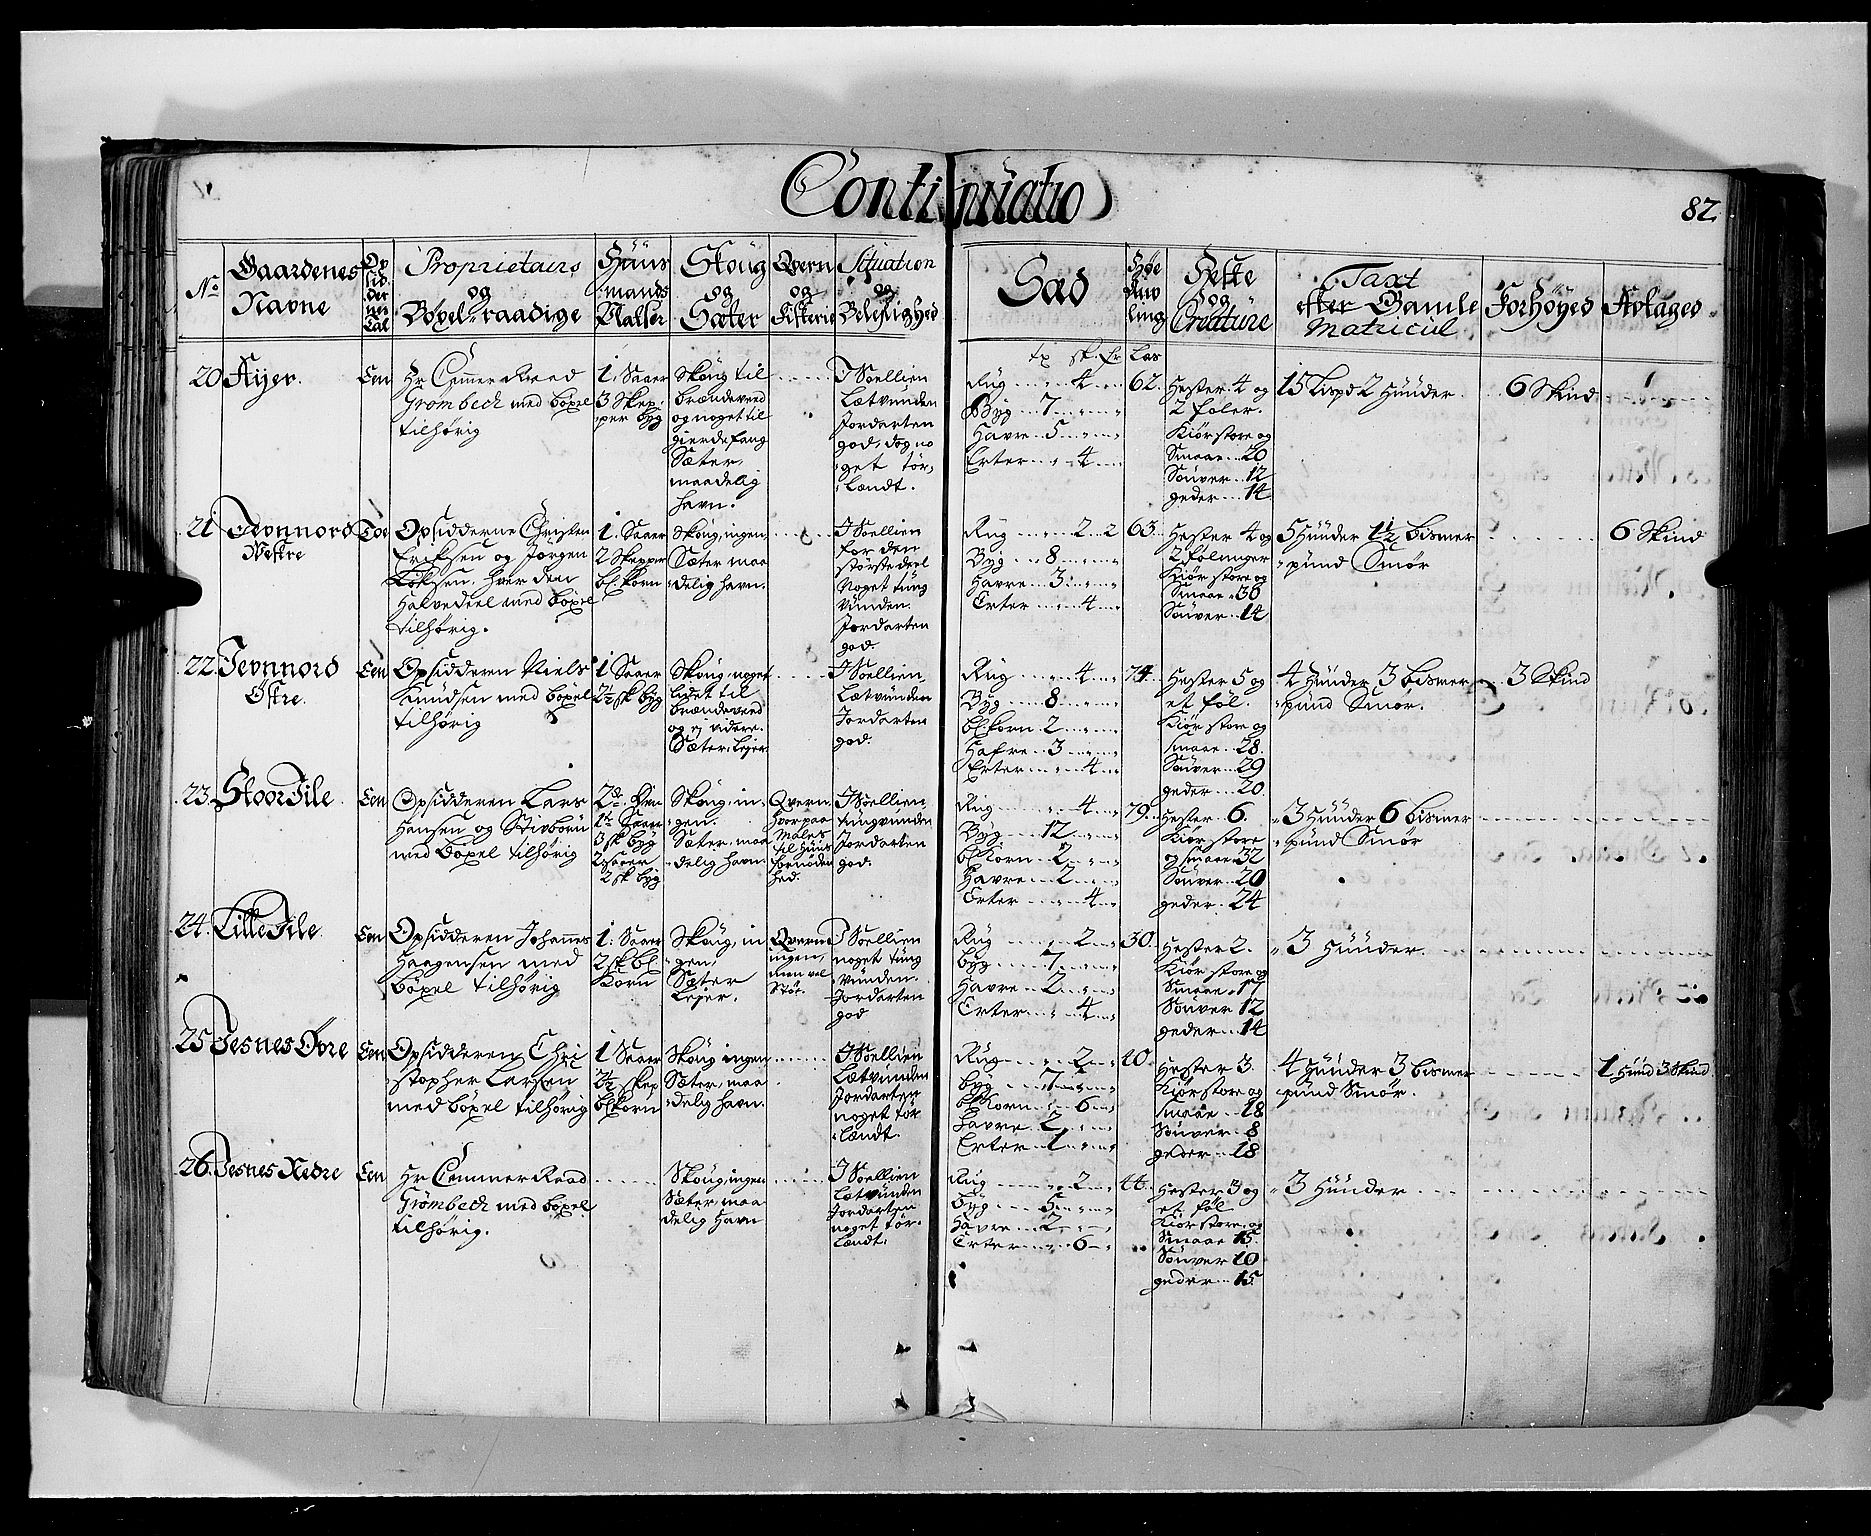 Continuatio
82.
No
Gaardenes Navne
Opsiddernes Tal
Proprietairs og Boxel-raadige
Huusmands Pladser
Skoug og Sæter
Qvern og Fiskerie
Situation og Beleylighed
Sæd
Høe Auvling
Heste og Creature
Taxt efter Gamle Matricul
Forhøyed
Aftaged
tr sk. fr Las
20
Een
Hr Cammer Raad
Grombech med boxel
tilhörig
1. Saaer
3 Skep-
per byg
Skoug til
brændeved
og noget til
gierdefang
Sæter,
maadelig
havn.
I Soellien
Lætvunden
Jordarten
god, dog no
get tør-
Lændt.
Rug 4
Byg 7
Havre 5
Erter 4
62.
Hester 4 og
2 foler.
Kiør store og
Smaae 20
Souver 12
geder 14
15 Lispd 2 Huuder.
6 Skind
21
Vestre
Toe
Opsidderne Christen
Eriksen og Jörgen
hver den
Halvedeel med boxel
tilhörig.
1. Saaer
2 Skepper
bl. korn
Skoug, ingen
Sæter maa
delig havn.
I Soellien
for den
störstedeel
Noget tung
vunden.
Jordarten
god.
Rug 2 2
Byg 8
Havre 3
Erter 4
63.
Hester 4 og
2 følunger
Kiør store og
Smaae 30
Souver 14
5 Huuder 1½ bismer
pund Smør
6 Skind
22
Jevnnord
Østre.
Een
Opsidderen Niels
Knudsen med boxel
tilhörig
1 Saaer
2½ sk byg
Skoug noget
lidet til
brændeved
og ej videre.
Sæter, Lejer
I Soellien,
Lætvunden
Jordarten
god.
Rug 4
Byg 8
bl. korn 2
Hafre 3
Erter 4
74.
Hester 5 og
et föl.
Kiør store og
smaae 28.
Souver 29
geder 20.
4 Huuder 3 bismer
pund Smør.
3 Skind
23.
Stoor Jile
Een
Opsidderen Lars
Hansen og Stivbörn
med boxel tilhörig
1½ Saaer
3 sk byg
2 Saaer
2 sk byg
Skoug, in-
gen.
Sæter, maa
delig havn.
Qvern,
hvorpaa
Males
til Huus
fornøden
hed.
I Soellien,
tungvunden
Jordarten
god.
Rug 4
Byg 12
bl. Korn 2
Havre 2
Erter 4
79.
Hester 6.
Kiør store
og smaae 32
Souver 20
geder 24
3 Huuder 6 bismer
pund Smör
24.
Lille Jile
Een
Opsidderen Johannes
Haagensen med
boxel tilhörig
1. Saaer
2 sk bl.
Korn
Skoug, in
gen,
Sæter
Lejer.
Qvern
ingen,
men vel
Støe.
I Soellien
noget tung
vunden.
Jordarten
god
Rug 2
byg 7
Havre 2
Erter 4
30.
Hester 2.
Kiør store og
Smaae 17
Souver 12
geder 14
3 Huuder.
25
Jesnes Övre
Een
Opsidderen Chri
stopher Larsen
med boxel tilhörig
1 Saaer
2½ skep
bl. korn
Skoug ingen
Sæter, maa
delig havn.
I Soellien
Lætvunden
Jordarten
noget tør
lændt.
Rug 2
byg 7
bl. Korn 6
Havre 2
Erter 1
40.
Hester 3.
Kiør store og
smaae 18
Souver 8
geder 18
4 Huuder 3 bismer
pund Smør.
1 Huud 3 Skind
26.
Jesnes Nedre
Een
Hr Cammer Raad
Grömbech med boxel
tilhörig.
Skoug, ingen
Sæter, maa
delig Havn
I Soellien
Lætvunden
Jordarten
noget tør-
Lændt.
Rug 2
byg 5
Havre 2
Erter 6
44.
Hester 3 og
et föl
Kiør store, og
Smaae 15
Souver 10
geder 15
3 Huuder